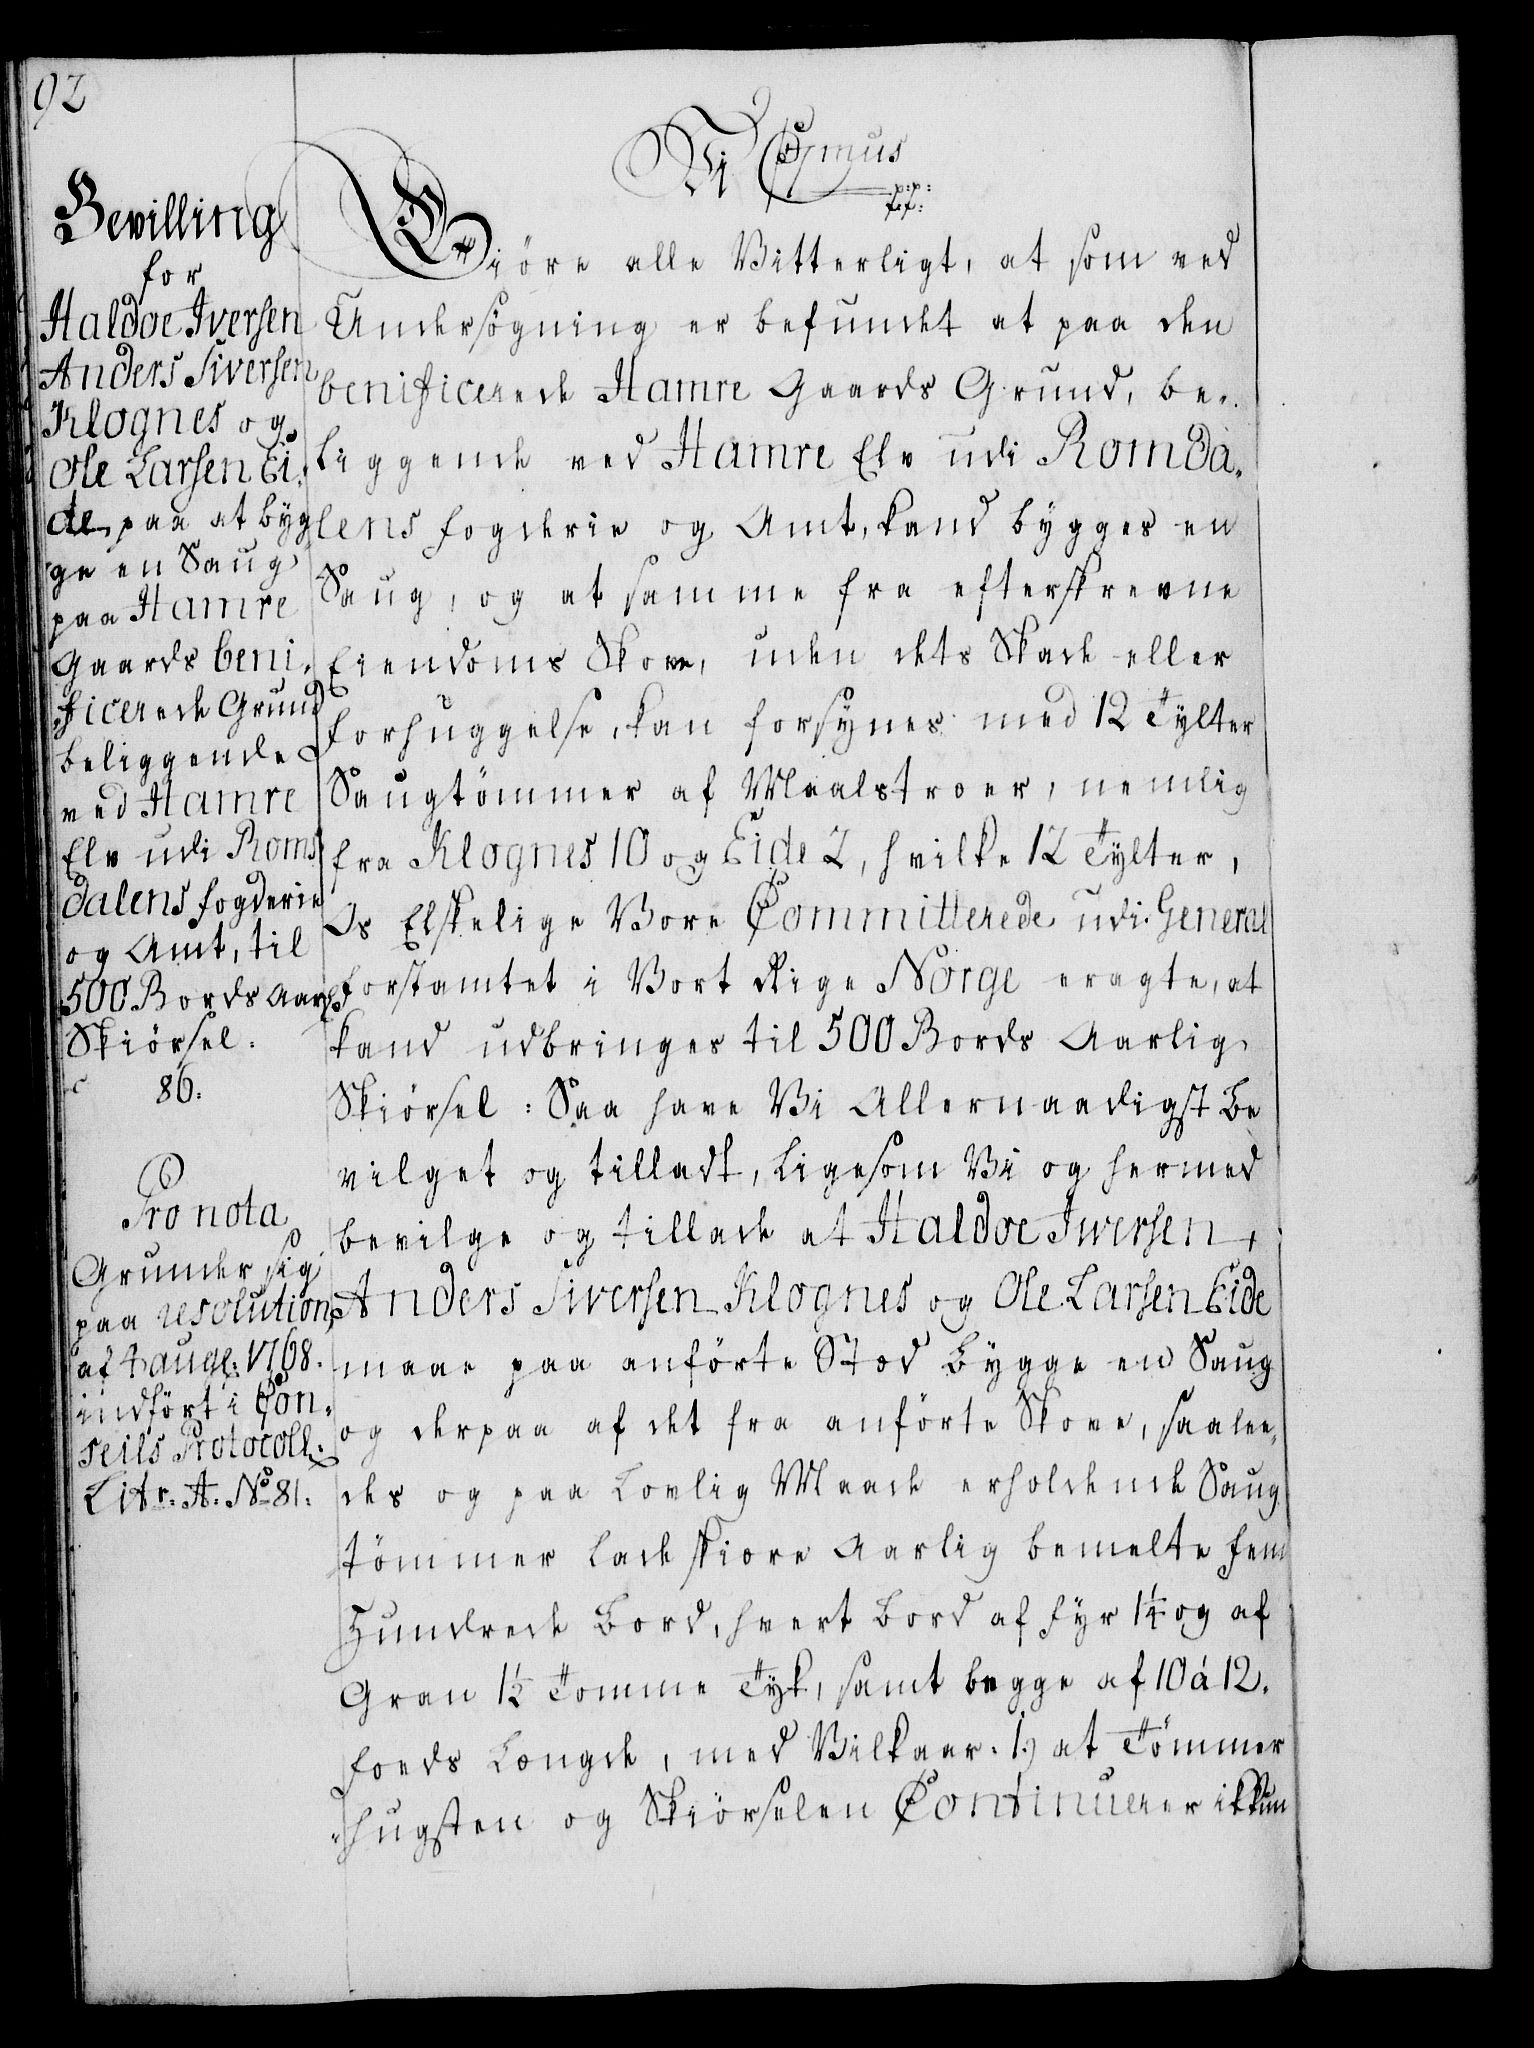 92
Bevilling
for
Haldoe Iversen
Anders Siversen
Klognes og
Ole Larsen Ei,
de, paa at byg
ge en Saug
paa Hamre
Gaards beni,
ficerede Grund
beliggende
ved Hamre
Elv udi Roms
dalens fogderie
og Amt, til
500 Bords Aarl:
Skiörsel.
86.
Pro nota
Grunder sig
paa resolution
af 4 aug: 1768.
indfört i Con,
seils Protocoll:
Litr. A. No 81.
Vi C7mus
p: p:
Giöre alle Vitterligt, at som ved
Undersögning er befundet at paa den
benificerede Hamre Gaards Grund, be,
liggende ved Hamre Elv udi Romda,
lens fogderie og Amt, kand bygges en
Saug, og at samme fra efterskrevne
Eiendoms Skove, uden dets Skade eller
forhuggelse, kan forsynes med 12 Tylter
Saugtömmer af Maalstroer, nemlig
fra Klognes 10 og Eide 2, hvilke 12 Tylter,
Os Elskelige Vore Committerede udi General
forstamtet i Vort Rige Norge eragte, at
kand udbringes til 500 Bords Aarlig
Skiörsel: Saa have Vi Allernaadigst be
vilget og tilladt, ligesom Vi og hermed
bevilge og tillade at Haldoe Iversen,
Anders Siversen Klognes og Ole Larsen Eide
maae paa anförte Stæd bygge en Saug
og derpaa af det fra anförte Skove, saale,
des og paa Lovlig Maade erholdende Saug
tömmer lade skiære Aarlig bemelte fem
Hundrede Bord, hvert Bord af Fyr 1¼ og af
Gran 1½ Tomme Tyk, samt begge af 10 á 12.
foeds Længde, med Vilkaar. 1.) at Tömmer
hugsten og Skiörselen Continuerer ikkun